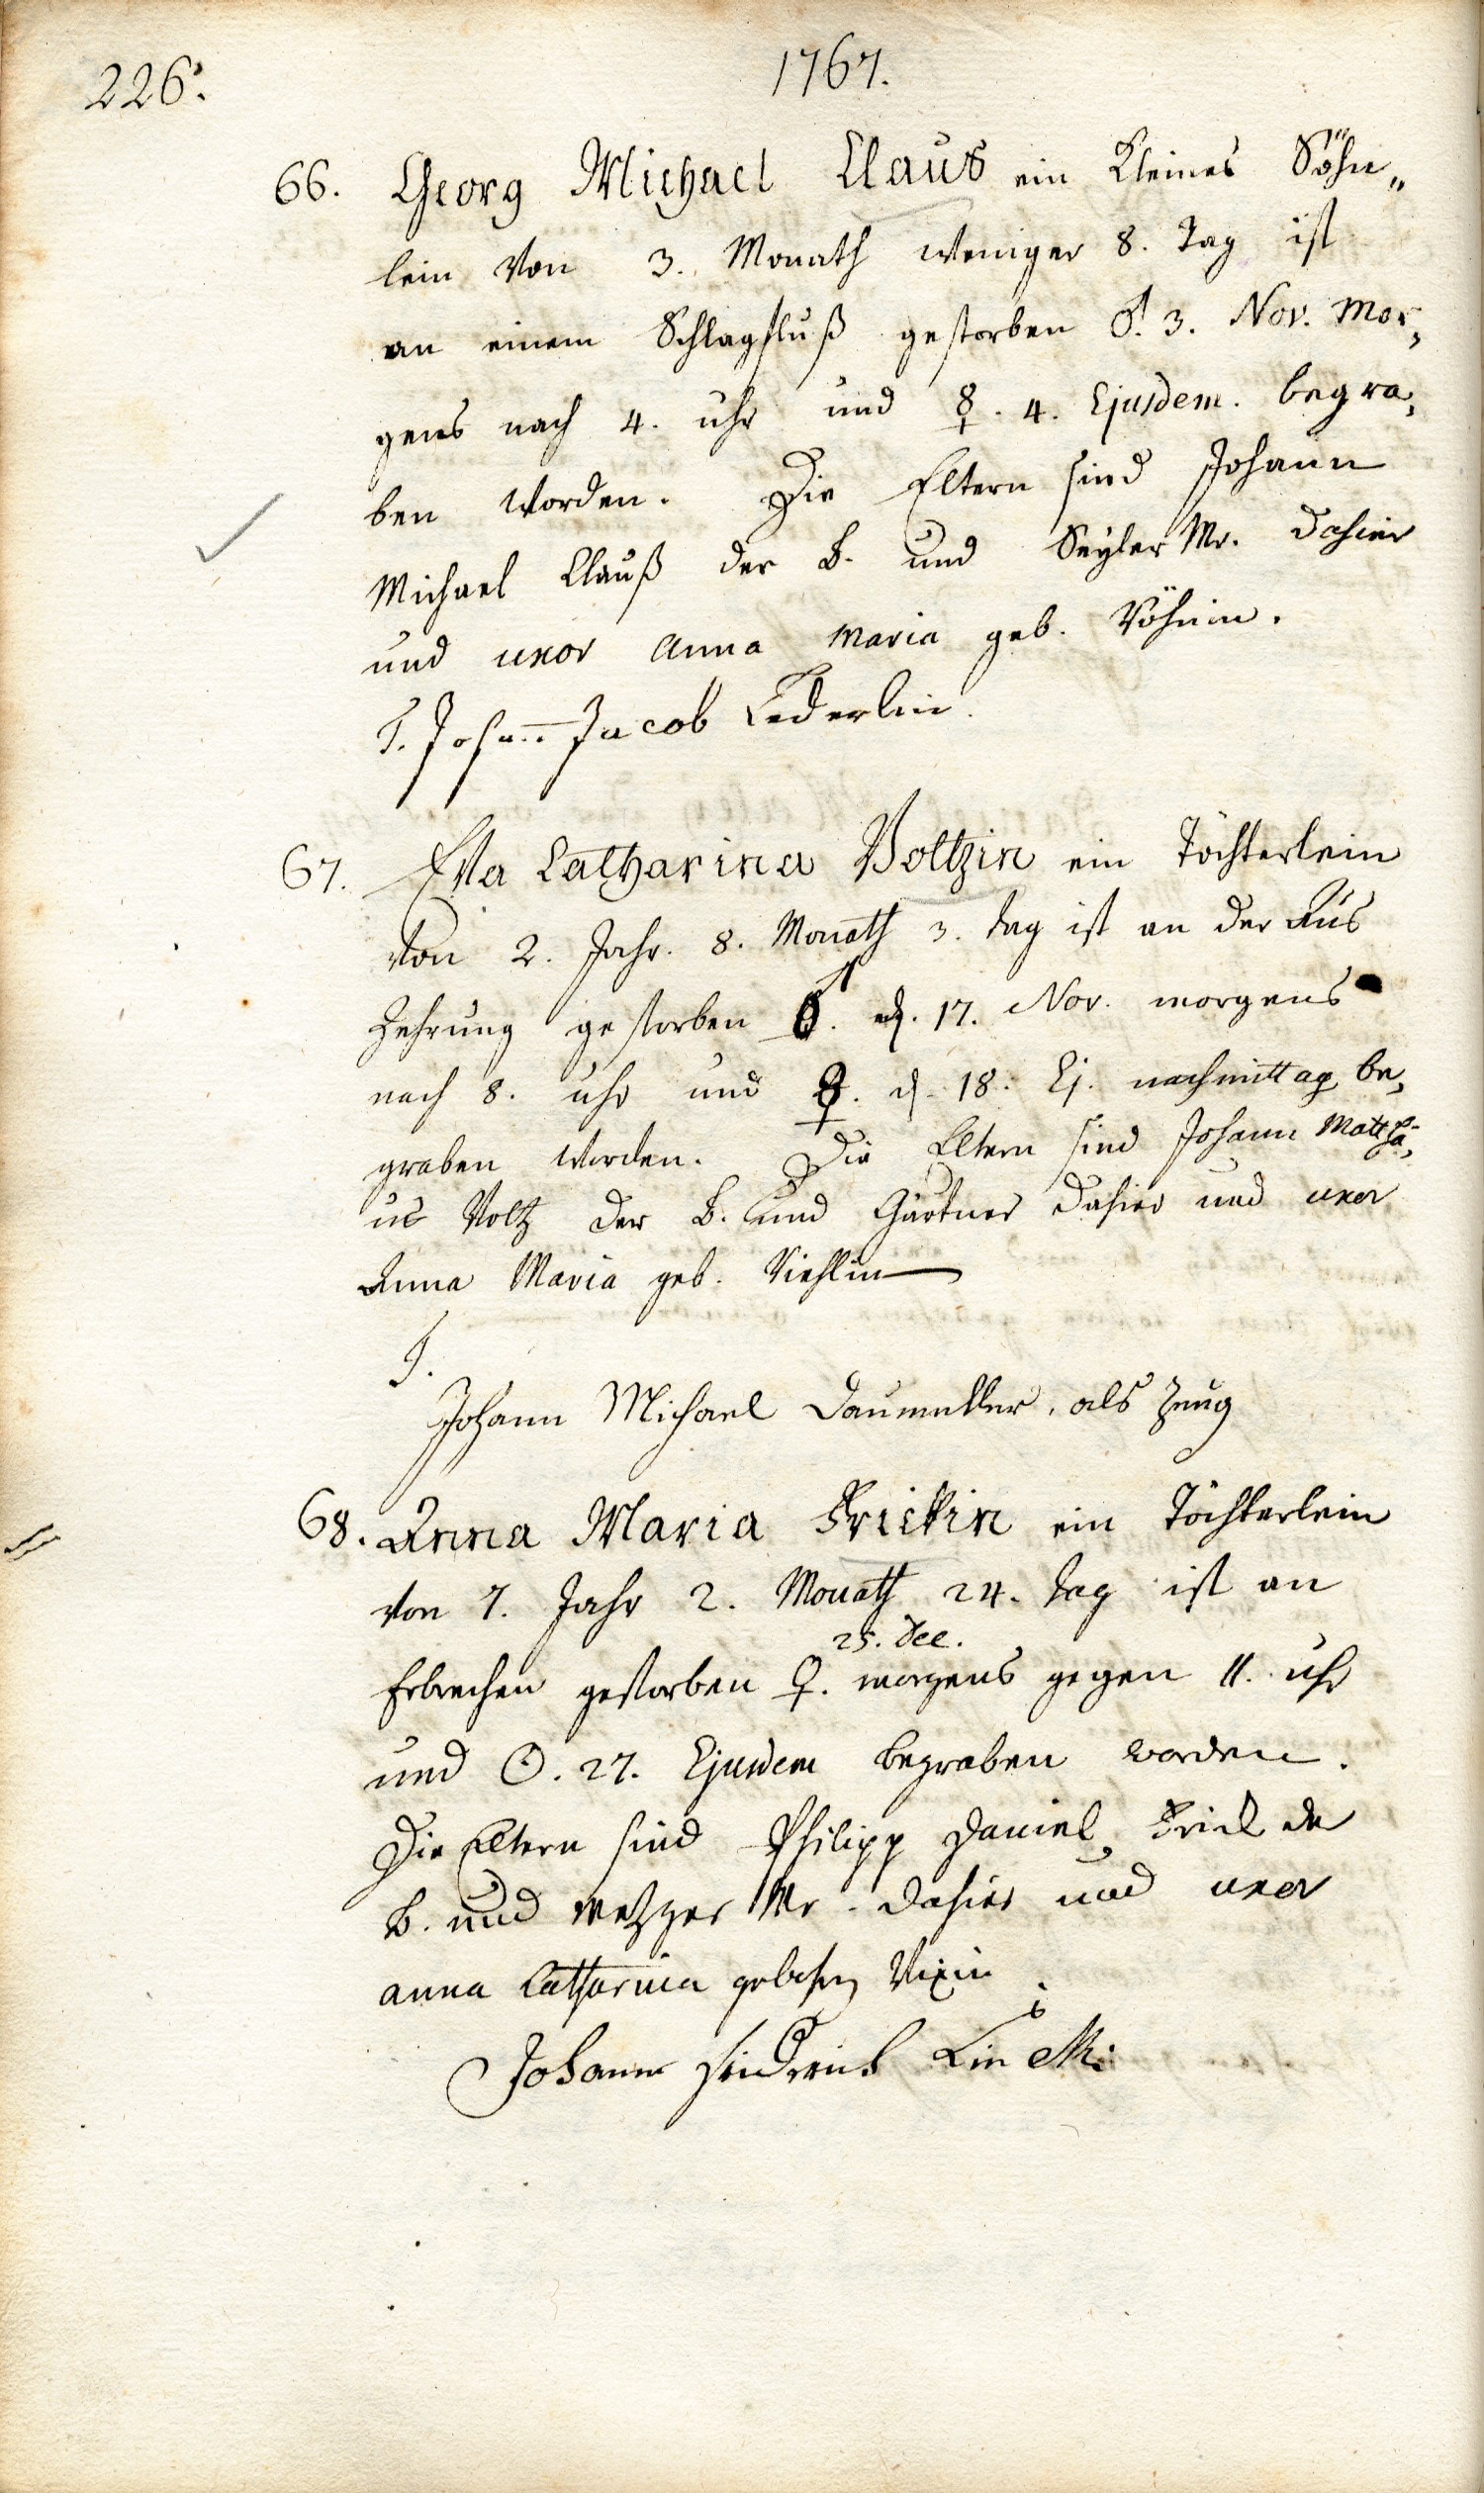 226.
1767.
66. Georg Michael Claus ein Kleines Söhn„
lein von 3. Monath weniger 8. Tag ist
an einem Schlagfluß gestorben ♂. 3. Nov. Mor„
gens nach 4. uhr und ☿. 4. Ejusdem. begra„
ben worden. Die Eltern sind Johann
Michael Clauß der B. und Seyler Mr. dahier
und uxor Anna Maria geb.
T. Johann Jacob Lederlin.
67. Eva Catharina Voltzin ein Töchterlein
von 2. Jahr. 8. Monath 3. tag ist an der Aus
Zehrung gestorben ♂. d. 17. Nov. morgens
nach 8. uhr und ☿. d. 18. Ej. nachmittag be„
graben worden. Die Eltern sind Johann Matthä„
us Voltz der B. und Gärtner dahier und uxor
Anna Maria geb.
T.
Johann Michael Daumüller, als Zeug
68. Anna Maria Frickin ein Töchterlein
von 7. Jahr 2. Monath 24. tag ist an
25. Dec.
Erbrechen gestorben ♀. morgens gegen 11. uhr
und ☉. 27. Ejusdem begraben worden.
Die Eltern sind Philipp Daniel Frick der
B. und Metzger Mr. dahier und uxor
Anna Catharina
Johann